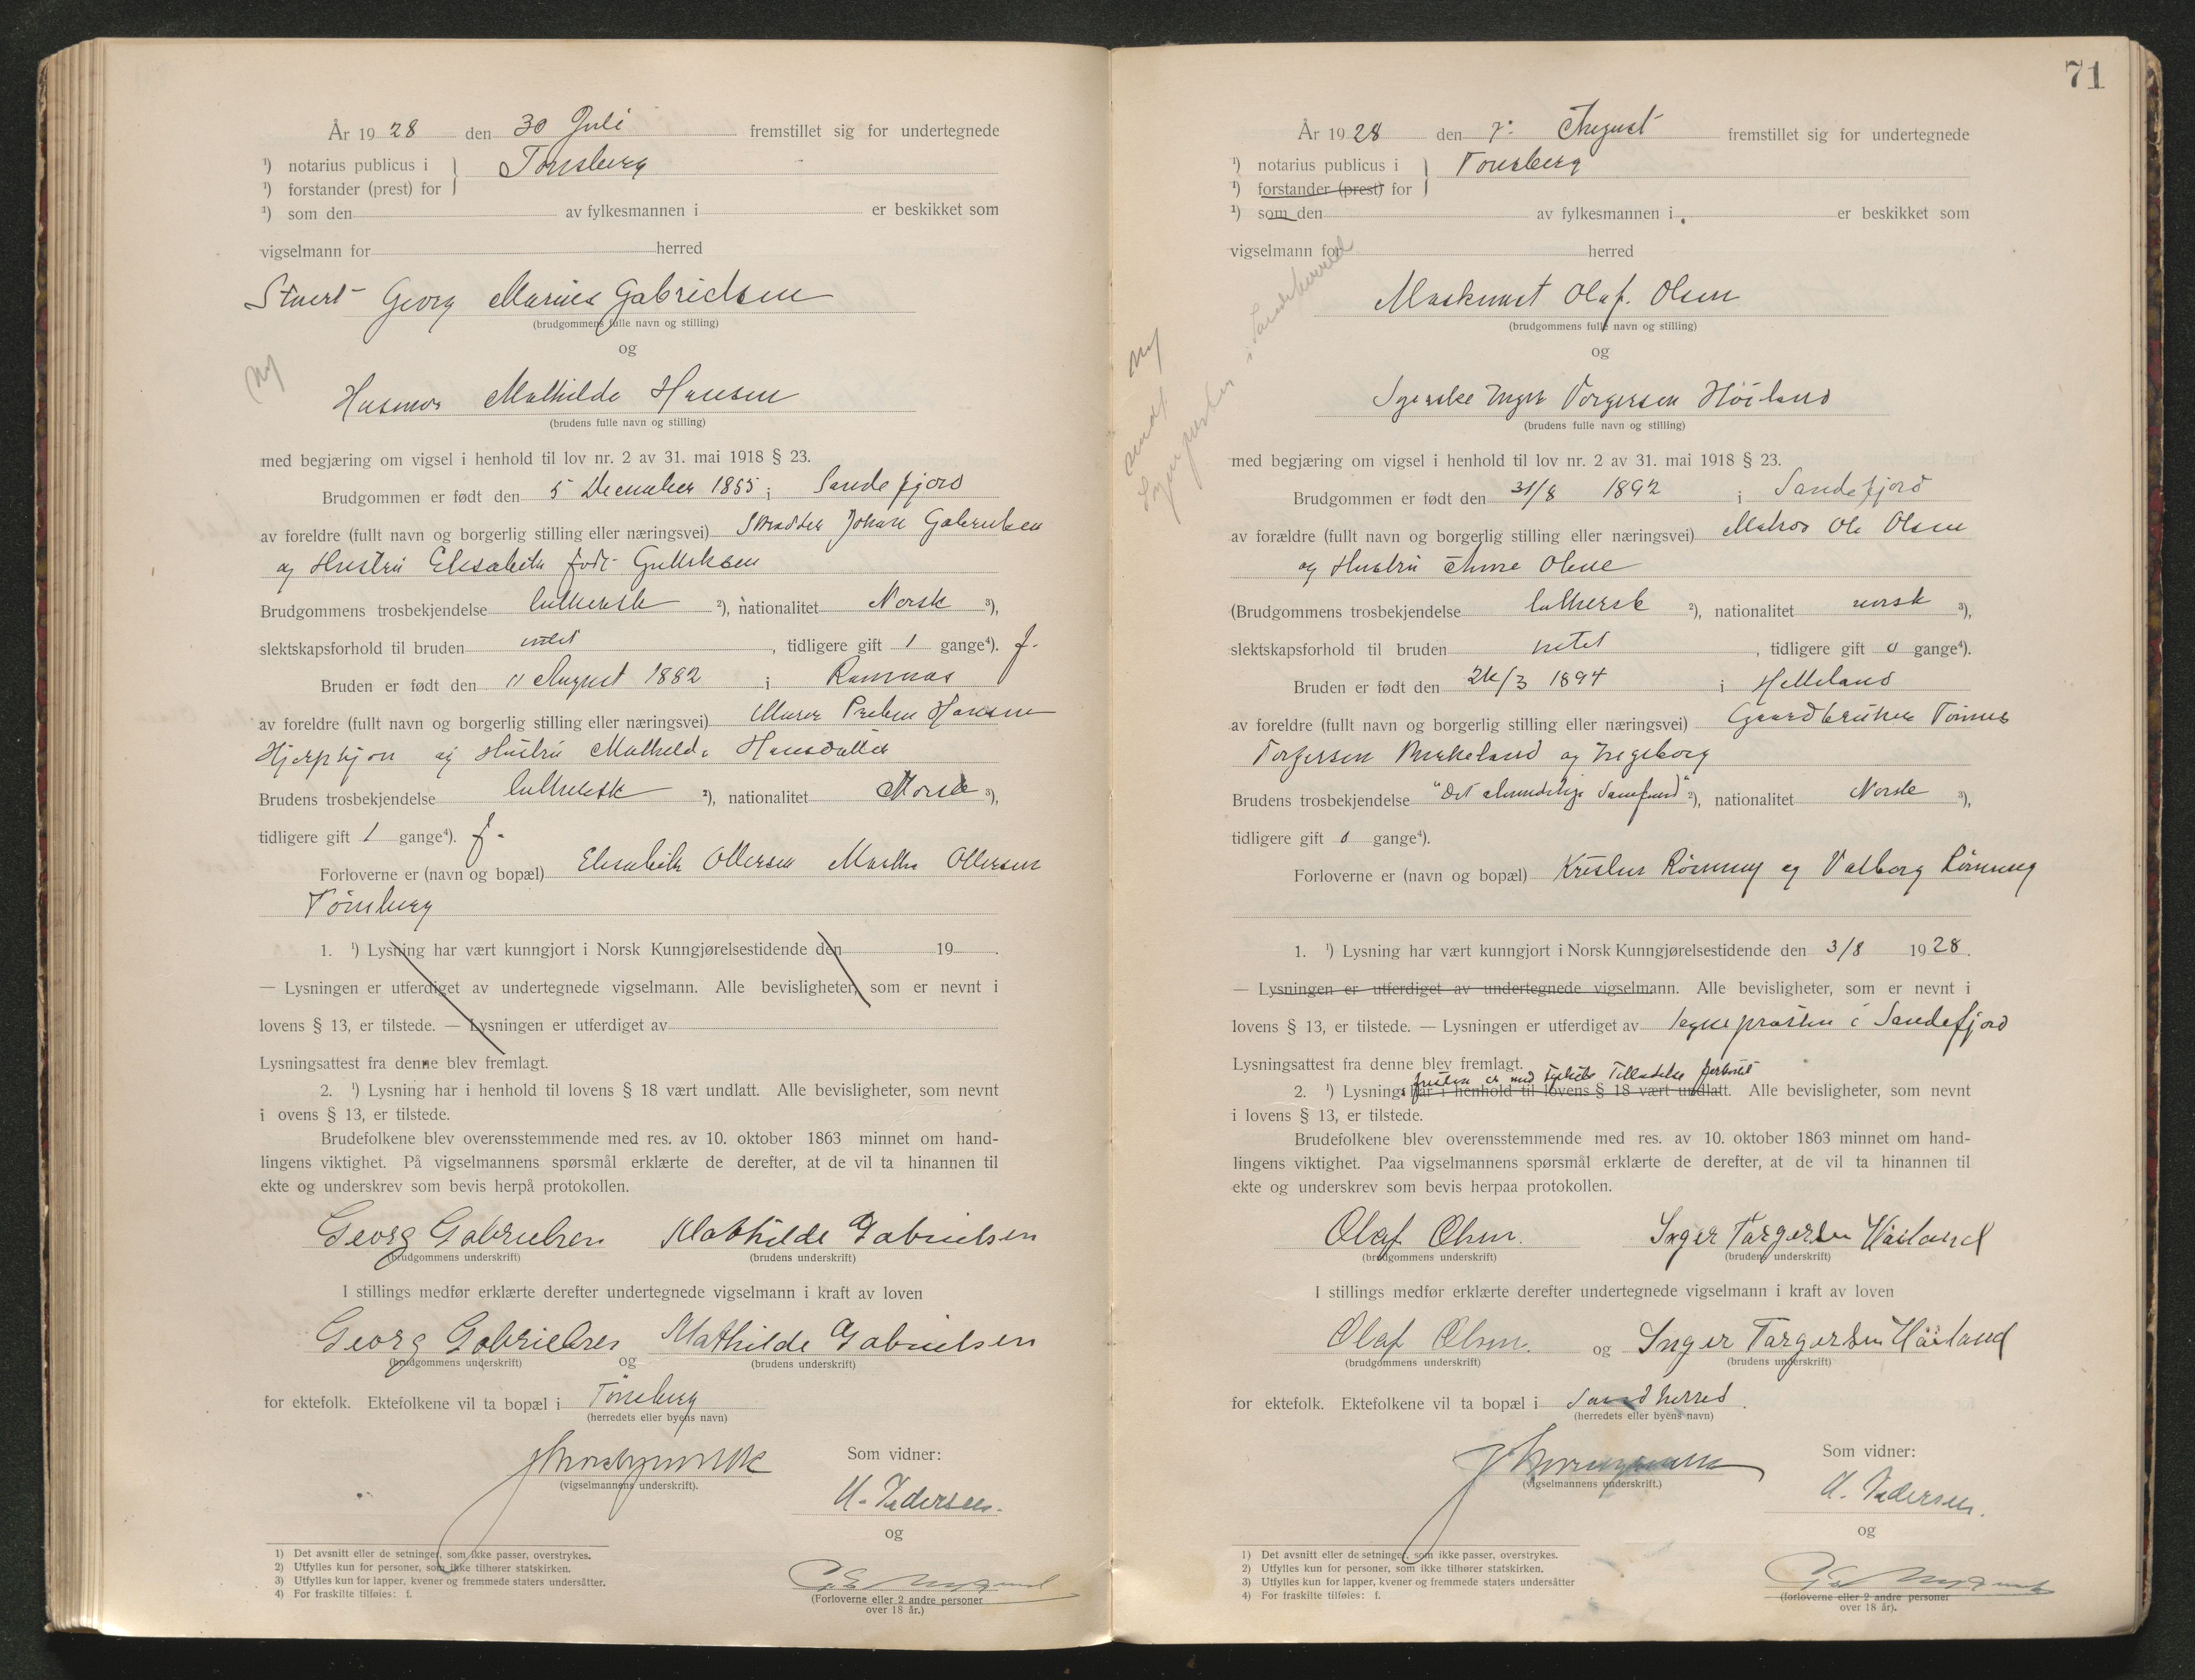 År 19 28 den 30 Juli fremstillet sig for undertegnede
¹) notarius publicus i } Tønsberg
¹) forstander (prest) for
¹) som den av fylkesmannen i er beskikket som
vigselmann for herred
Stuert Georg Marius Gabrielsen
(brudgommens fulle navn og stilling)
og
Husmor Mathilde Hansen
(brudens fulle navn og stilling)
med begjæring om vigsel i henhold til lov nr. 2 av 31. mai 1918 § 23.
Brudgommen er født den 5 December 1885 i Sandefjord
av foreldre (fullt navn og borgerlig stilling eller næringsvei) Skrædder Johan Gabrielsen
og Hustru Elisabeth født Gulliksen
Brudgommens trosbekjendelse luthersk ²), nationalitet Norsk ³),
slektskapsforhold til bruden intet, tidligere gift 1 gange⁴). f.
Bruden er født den 11 August 1882 i Ramnæs
av foreldre (fullt navn og borgerlig stilling eller næringsvei) Murer Preben Hansen
og Hustru Mathilde Hansdatter
Brudens trosbekjendelse luthersk ²), nationalitet Norsk ³),
tidligere gift 1 gange⁴). f.
Forloverne er (navn og bopæl) Elisabeth Ollersen Martha Ollersen
Tønsberg
1. ¹) Lysning har vært kunngjort i Norsk Kunngjørelsestidende den 19 .
— Lysningen er utferdiget av undertegnede vigselmann. Alle bevisligheter, som er nevnt i
lovens § 13, er tilstede. — Lysningen er utferdiget av
Lysningsattest fra denne blev fremlagt.
2. ¹) Lysning har i henhold til lovens § 18 vært undlatt. Alle bevisligheter, som nevnt
i ovens § 13, er tilstede.
Brudefolkene blev overensstemmende med res. av 10. oktober 1863 minnet om hand-
lingens viktighet. På vigselmannens spørsmål erklærte de derefter, at de vil ta hinannen til
ekte og underskrev som bevis herpå protokollen.
Georg Gabrielsen Mathilde Gabrielsen
(brudgommens underskrift) (brudens underskrift)
I stillings medfør erklærte derefter undertegnede vigselmann i kraft av loven
Georg Gabrielsen og Mathilde Gabrielsen
(brudgommens underskrift) (brudens underskrift)
for ektefolk. Ektefolkene vil ta bopæl i Tönsberg
(herredets eller byens navn)
Som vidner:
(vigselmannens underskrift).
M. Pedersen.
og
(Forloverne eller 2 andre personer
over 18 år.)
1) Det avsnitt eller de setninger, som ikke passer, overstrykes.
2) Utfylles kun for personer, som ikke tilhører statskirken.
3) Utfylles kun for lapper, kvener og fremmede staters undersåtter.
4) For fraskilte tilføies: f.
71
År 19 28 den 7. August fremstillet sig for undertegnede
¹) notarius publicus i } Tønsberg
¹) forstander (prest) for
¹) som den av fylkesmannen i er beskikket som
vigselmann for herred
Maskinist Olaf. Olsen
(brudgommens fulle navn og stilling)
og
Sykerske Inger Torgersen Höiland
(brudens fulle navn og stilling)
med begjæring om vigsel i henhold til lov nr. 2 av 31. mai 1918 § 23.
Brudgommen er født den 31/8 1892 i Sandefjord
av forældre (fullt navn og borgerlig stilling eller næringsvei) Matros Ole Olsen
og Hustru Anne Olene
(Brudgommens trosbekjendelse luthersk ²), nationalitet norsk ³),
slektskapsforhold til bruden intet, tidligere gift 0 gange⁴).
Bruden er født den 24/3 1894 i Helleland
av foreldre (fullt navn og borgerlig stilling eller næringsvei) Gaardbruker Tönnes
Torgersen Birkeland og Ingeborg
Brudens trosbekjendelse "Det almindelige Samfund" ²), nationalitet Norsk ³),
tidligere gift 0 gange⁴).
Forloverne er (navn og bopæl) Kristen Rönning og Valborg Rönning
1. ¹) Lysning har vært kunngjort i Norsk Kunngjørelsestidende den 3/8 19 28.
— Lysningen er utferdiget av undertegnede vigselmann. Alle bevisligheter, som er nevnt i
lovens § 13, er tilstede. — Lysningen er utferdiget av sogneprästen i Sandefjord
Lysningsattest fra denne blev fremlagt.
fristen er med Tilladelse forkortet
2. ¹) Lysnings har i henhold til lovens § 18 vært undlatt. Alle bevisligheter, som nevnt
i lovens § 13, er tilstede.
Brudefolkene blev overensstemmende med res. av 10. oktober 1863 minnet om hand-
lingens viktighet. Paa vigselmannens spørsmål erklærte de derefter, at de vil ta hinannen til
ekte og underskrev som bevis herpaa protokollen.
Olaf Olsen. Inger Targersen Häiland
(brudgommens underskrift) (brudens underskrift)
I stillings medfør erklærte derefter undertegnede vigselmann i kraft av loven
Olaf Olsen. og Inger Targersen Häiland
(brudgommens underskrift) (brudens underskrift)
for ektefolk. Ektefolkene vil ta bopæl i Sandeherred.
(herredets eller byens navn)
Som vidner:
(vigselmannens underskrift.)
M. Pedersen.
og
(forloverne eller 2 andre personer
over 18 år).
1) Det avsnitt eller de setninger, som ikke passer, overstrykes.
2) Utfylles kun for personer, som ikke tilhører statskirken.
3) Utfylles kun for lapper, kvener og fremmede staters undersåtter
4) For fraskilte tilføies: f.